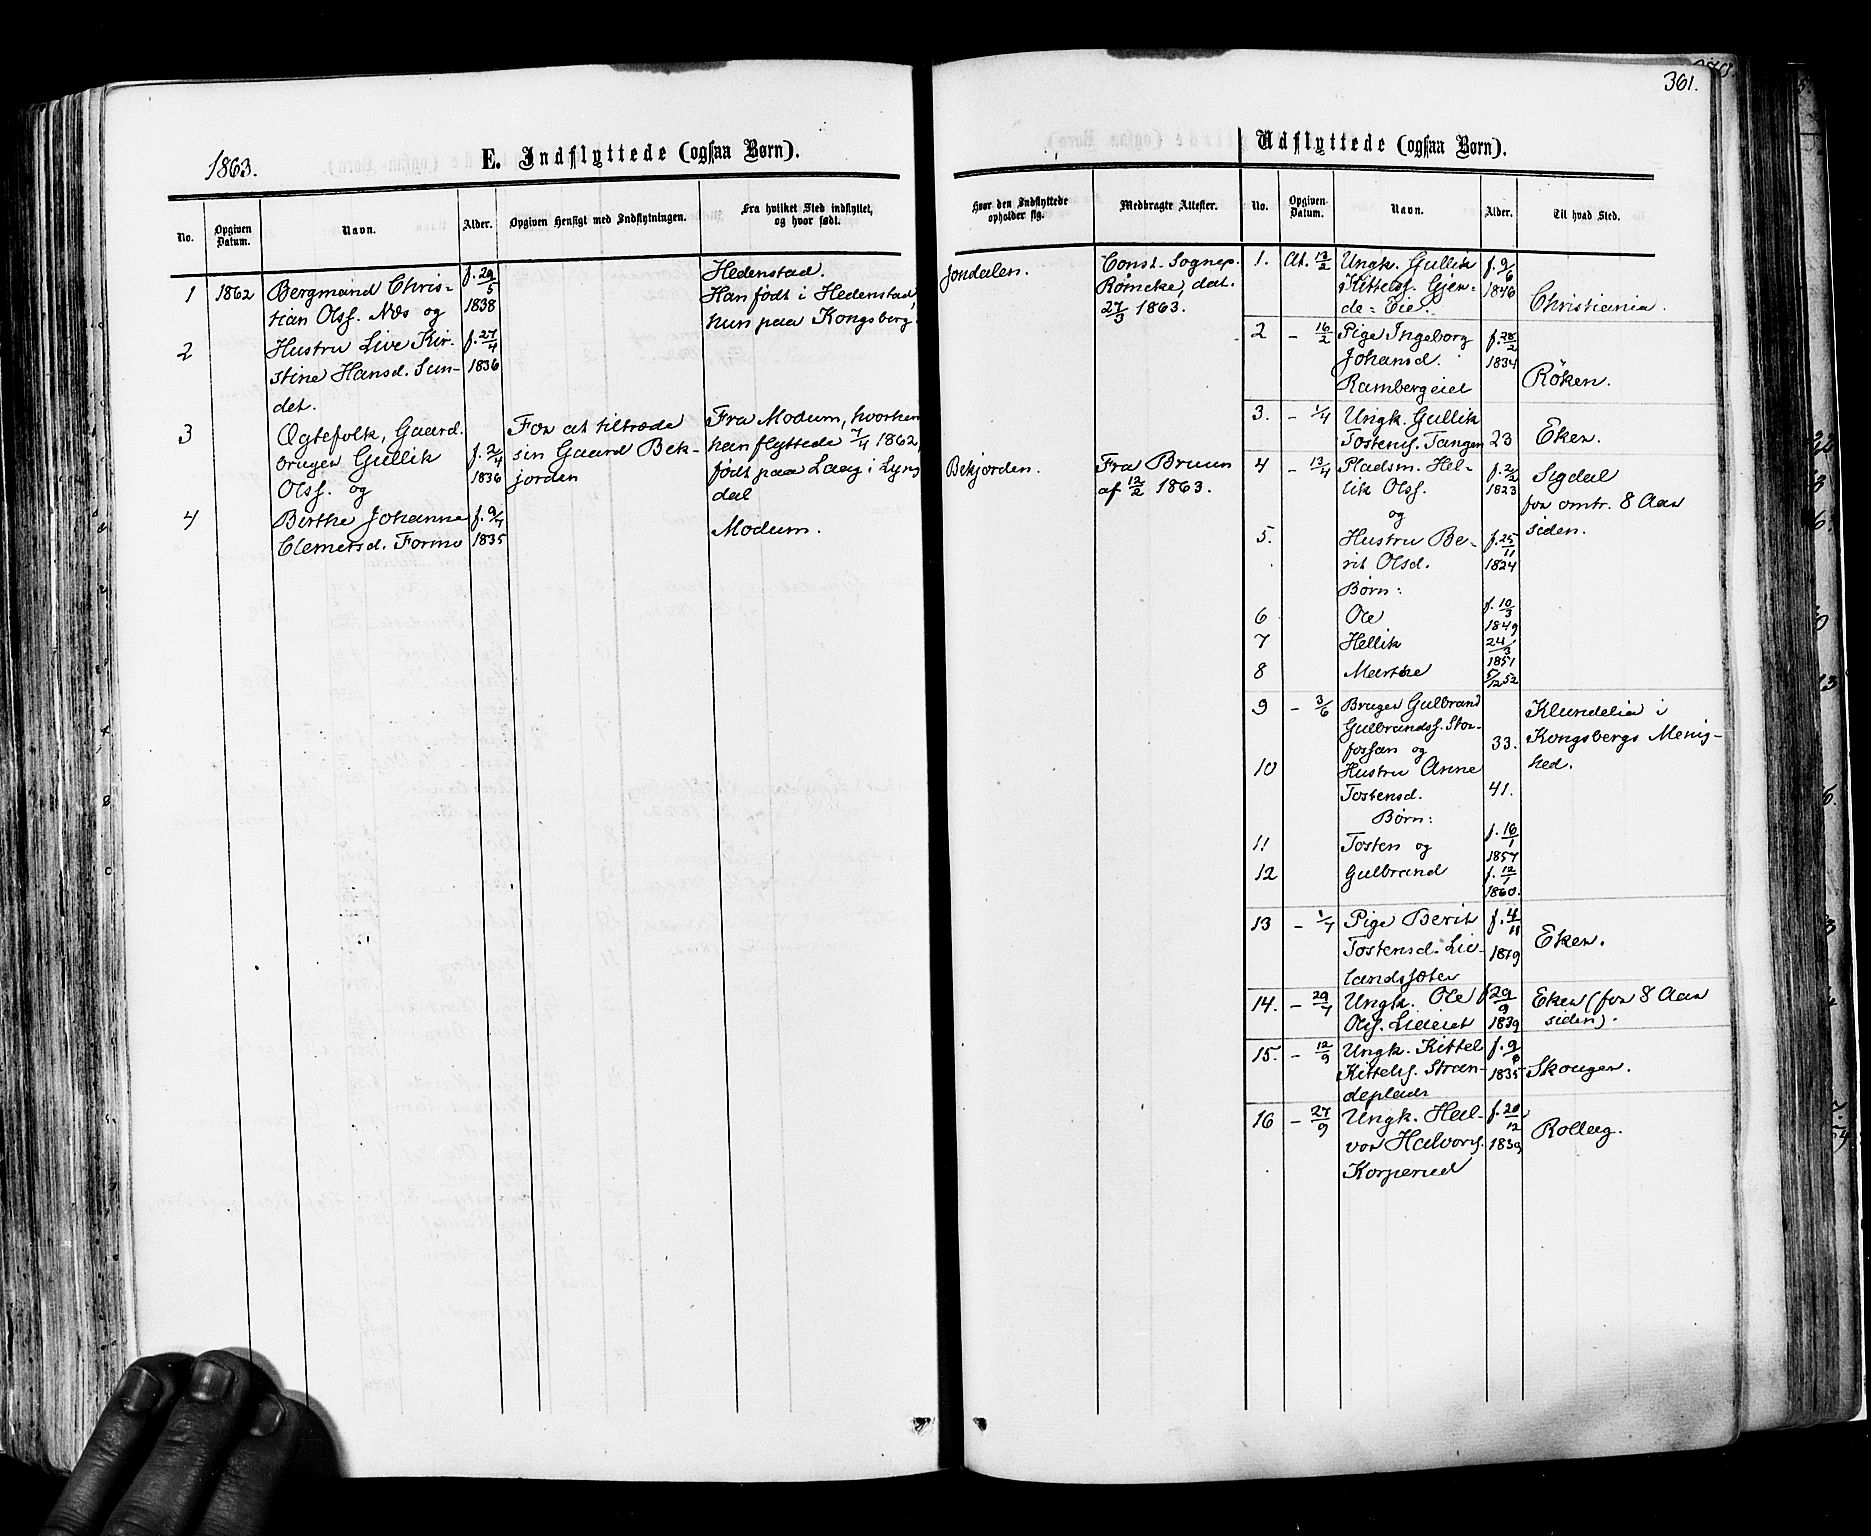 361.
1863.
E. Indflyttede (ogsaa Børn).
No.
Opgiven Datum.
Navn.
Alder.
Opgiven Hensigt med Indflytningen.
Fra hvilket Sted indflyttet, og hvor født.
1 1862 Bergmand Chris- f. 29/5 Hedenstad.
tian Olss. Næs og 1838 Han født i Hedenstad,
hun paa Kongsberg.
2 Hustru Live Kir- f. 27/4
stine Hansd. Sun- 1836
det.
3 Ægtefolk, Gaard- For at tiltræde Fra Modum, hvorhen
bruger Gullik f. 2/4 sin Gaard Bek- han flyttede 7/4 1862,
Olss. og 1836 jorden født paa Laag i Lyng
dal
4 Berthe Johanne f. 9/7 Modum.
Clemetsd. Formo 1835
Hvor den Indflyttede opholder sig.
Medbragte Attester.
Jondalen. Const. Sognep.
Römcke, dat.
27/3 1863.
Bekjorden. Fra Bruun
af 12/2 1863.
Udflyttede (ogsaa Børn).
No.
Opgiven Datum.
Navn.
Alder.
Til hvad Sted.
1. At. 13/2 Ungk. Gullik f. 9/6
Kittels. Gjen- 1846
de-Eie. Christiania.
2 – 16/2 Pige Ingeborg f. 28/2
Johansd. 1834
Rambergeiet Röken.
3. – 1/4 Ungk. Gullik
Tostens. Tangen 23 Eker.
4 – 13/4 Pladsm. Hel- f. 2/2 Sigdal
lik Olss. 1823 for omtr. 8 Aar
og siden.
5. Hustru Be- f. 25/11
rit Olsd. 1824
Børn:
6 Ole f. 10/3 1849
7 Hellik 24/3 1851
8 Marthe 5/12 52
9 – 3/6 Bruger Gulbrand Klundelia i
Gulbrands. Stor- Kongsbergs Menig-
fossan og 33. hed.
10 Hustru Anne
Tostensd. 41.
Børn:
11 Tosten og f. 16/1 1857
12 Gulbrand f. 12/1 1860.
13 – 1/7 Pige Berit f. 4/11
Tostensd. Lie- 1819 Eker.
landssæter
14. – 29/7 Ungk. Ole f 29/9 Eker (for 8 Aar
Olss. Lideiet 1839 siden).
15. – 12/9 Ungk. Kittel f. 9/6
Kittels. Stran- 1835 Skouger.
deplads
16 – 27/9 Ungk. Hal- f. 20/12
vor Halvors. 1839 Rollag.
Korperud